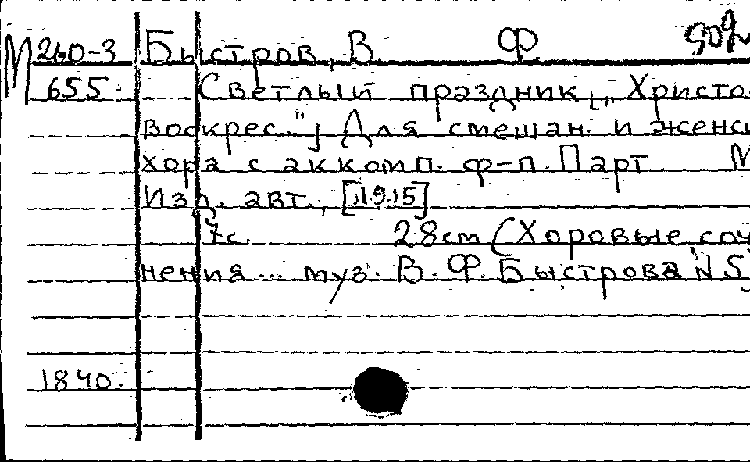 М 260-3 Быстров, В. Ф.
655. Светлый праздник „Христо
воскрес."; Для смешан. и женс
хора с аккомп. ф-п. Парт М
Изд. авт., [1915]
7с. 28см (Хоровые соч
нения... муз. В. Ф. Быстрова №5
1840.